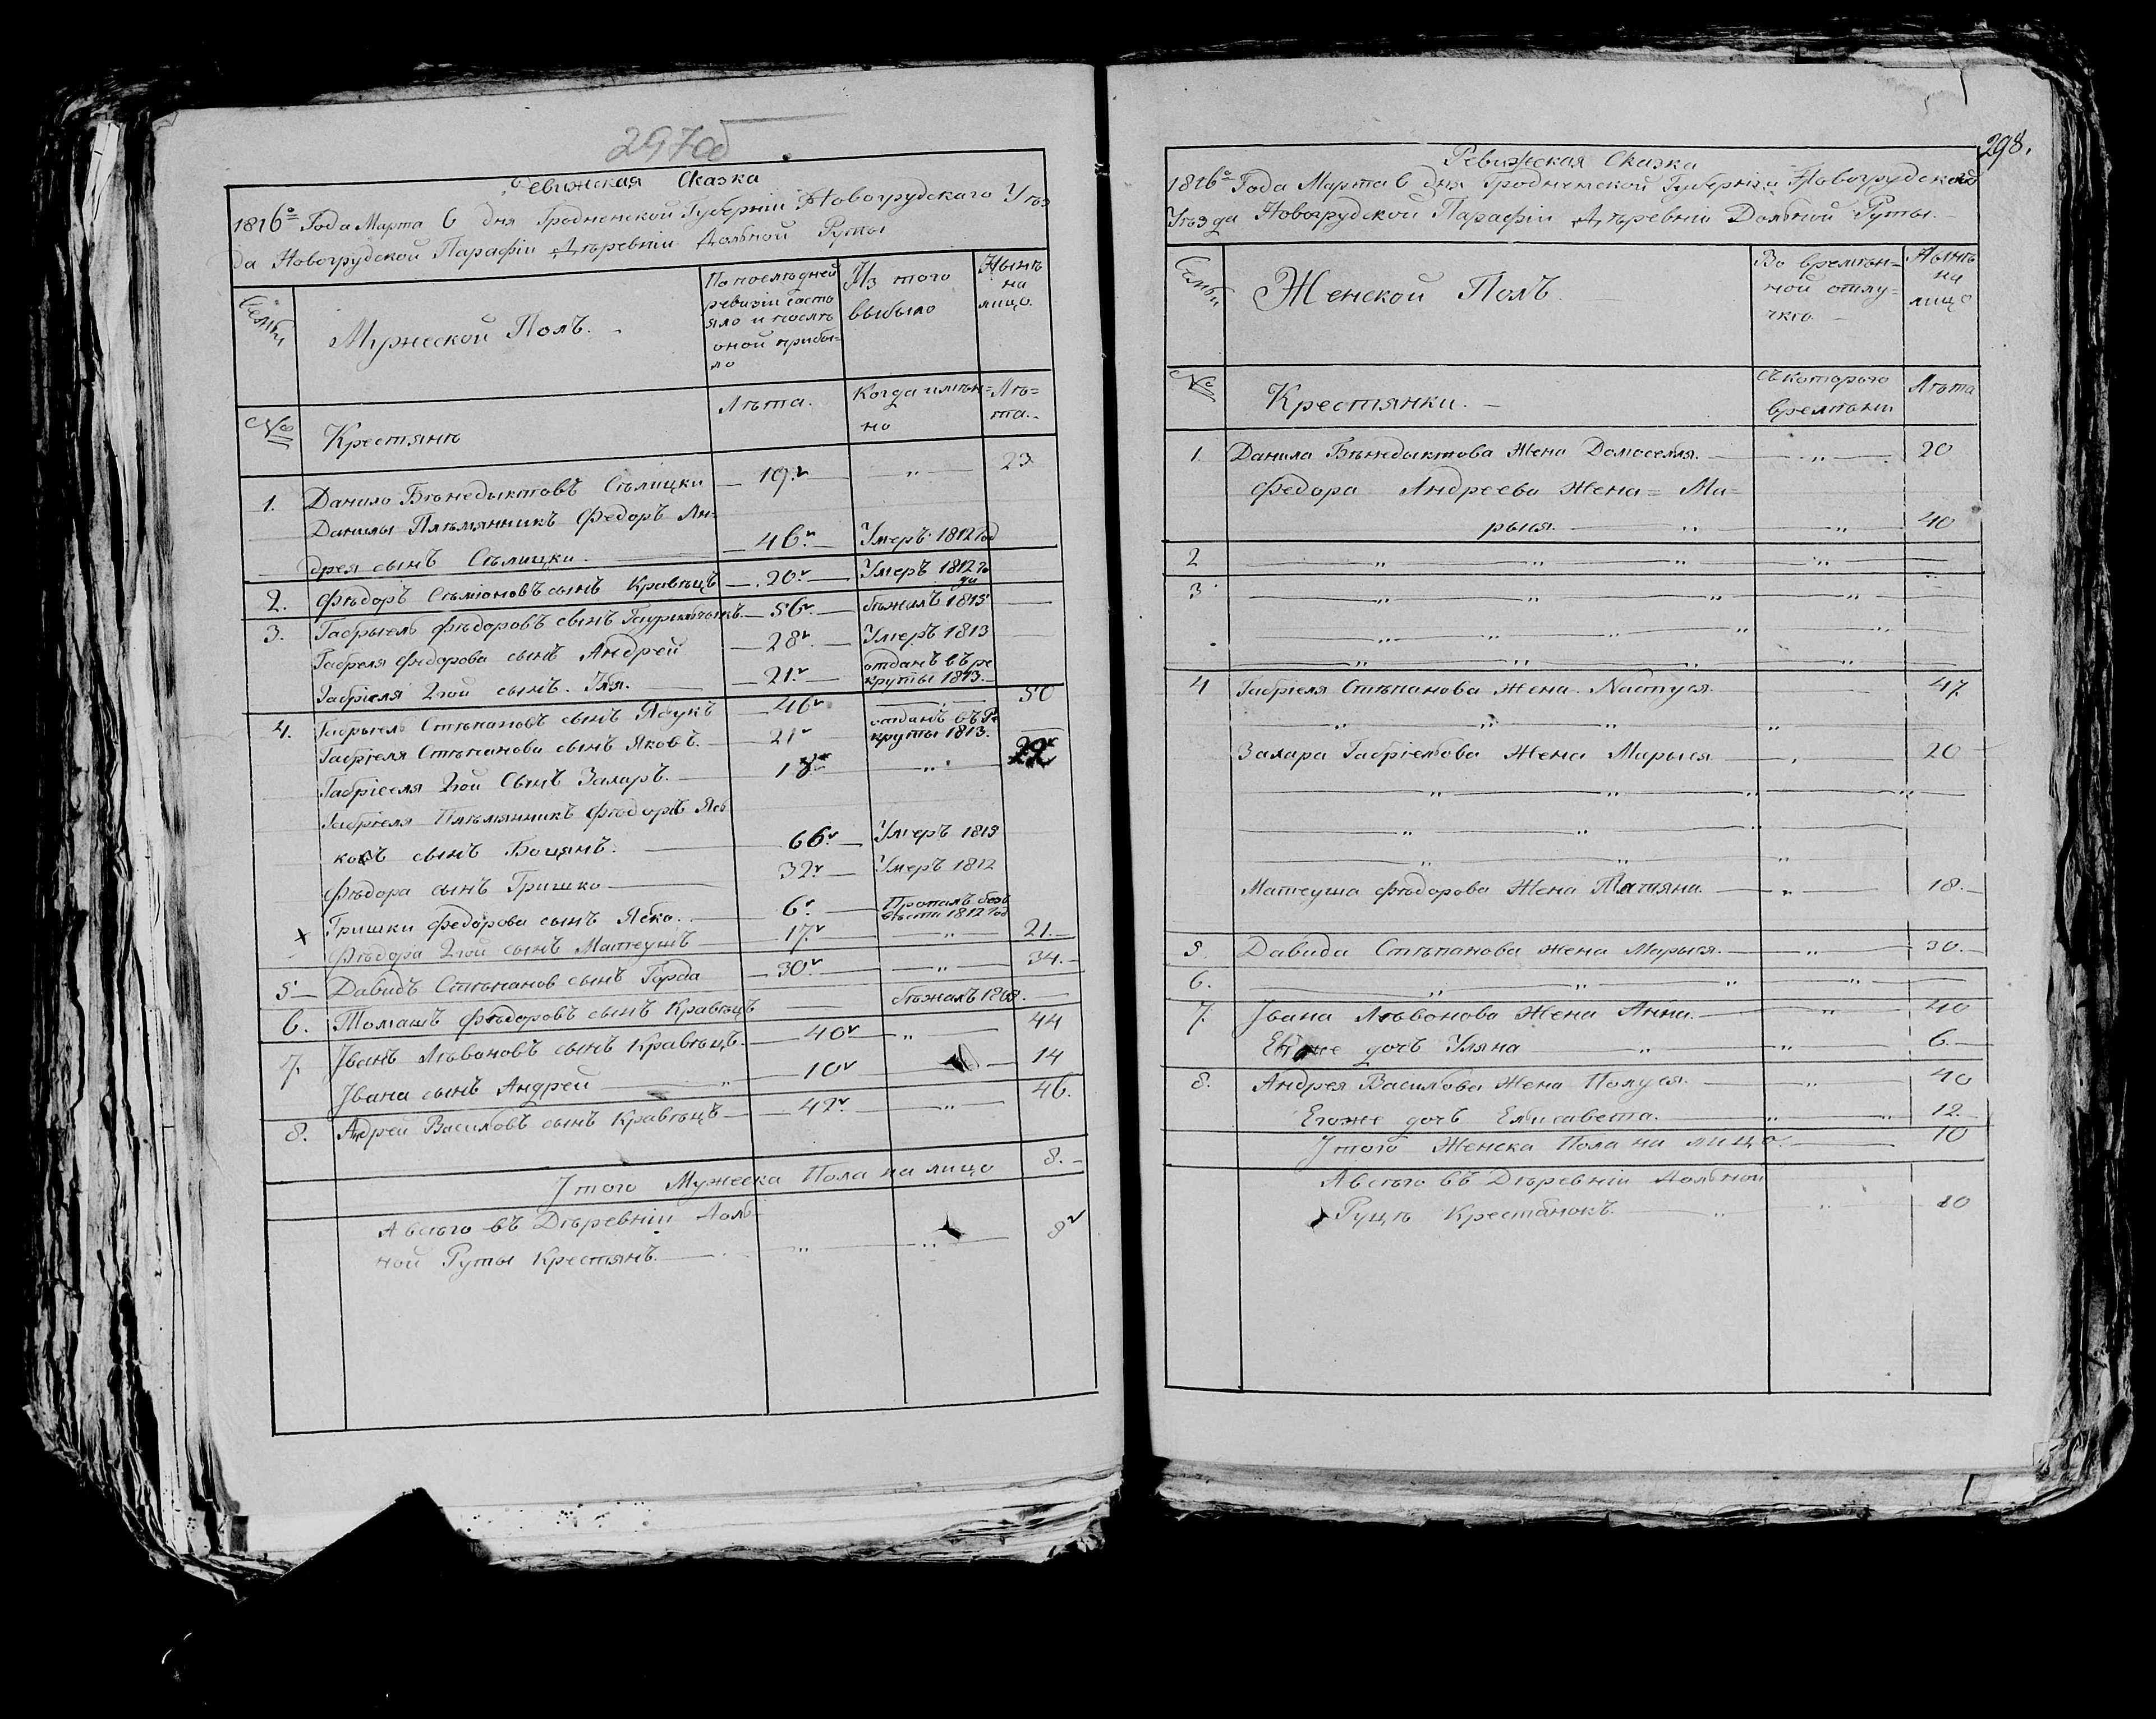 297об
Ревижская Сказка
1816го Года Марта 6 дня Гродненской Губерніи Новогрудскаго Уѣз
да Новогрудской Парафіи Дѣревніи Дольной Руты
Семьи
Мужеской Полъ.
По послѣдней
ревизіи состо
яло и послѣ
оной прибы=
ло
Из того
выбыло
Нынѣ
на
лицо.
№
Крестянѣ
Лѣта.
Когда имѣн=
но
Лѣ=
та.
1. Данило Бѣнедыктовъ Сѣлицки 19. " 23
Данилы Плѣмянникъ Федоръ Ан=
дрея сынъ Сѣлицки 46. Умеръ 1812 год
2. Фѣдоръ Сѣміоновъ сынъ Кравѣцъ 20. Умеръ 1812 го
да
3. Габрыель Фѣдоровъ сынъ 56. бѣжалъ 1815
Габреля Федорова сынъ Андрей 28. Умеръ 1813
Габріеля 2гой сынъ Илья. 21. отданъ въ ре
круты 1813.
4. Габрыель Стѣпановъ сынъ Ябукъ 46 50
Габріеля Стѣпанова сынъ Яковъ. 21 отданъ въ Ре
круты 1813.
Габріеля 2гой Сынъ Захаръ. 18 " 22
Габріеля Плѣмянникъ Фѣдоръ Яв
ковъ сынъ Боцянъ. 66. Умеръ 1815
Фѣдора сынъ Гришко 32. Умеръ 1812
Гришки Федорова сынъ Ябко. 6. Пропалъ безъ
вѣсти 1812 год
Фѣдора 2гой сынъ Матеушъ 17. " 21.
5 Давидъ Стѣпанов сынъ Горда 30. " 34.
6. Томашъ Фѣдоровъ сынъ Кравѣцъ бѣжалъ 1808.
7. Іванъ Лѣвоновъ сынъ Кравѣцъ. 40 " 44
Івана сынъ Андрей " 10 14
8. Андреи Васильовъ сынъ Кравѣцъ 42. " 46.
Ітого Мужеска Пола на лицо 8.
А всѣго въ Дѣревніи Доль
ной Руты Крестянъ. " " 8
298.
Ревижская Сказка
1816го Года Марта 6 дня Гродненской Губерніи Новогрудской
Уѣзда Новогрудской Парафіи Дѣревніи Дольной Руты.
Семьи
Женской Полъ.
Во времѣн=
ной отлу=
чкѣ.
Нынѣ
на
лицо
№
Крестянки.
Съ котораго
времѣни
Лѣта
1. Данила Бѣнедыктова Жена Домоселля. " 20
Федора Андреева Жена = Ма=
рыся. " " 40
2 " " "
3 " " " "
" " " " "
" " " "
4 Габріеля Стѣпанова Жена Настуся. 47
" " " "
Захара Габріельова Жена Марыся " 20
" " " "
" " "
" " "
Матеуша Фѣдорова Жена Татяна " 18.
5. Давида Стѣпанова Жена Марыся. " 30.
6. " " " "
7. Івана Лѣвонова Жена Анна. " 40
Егоже дочъ Уляна " " 6.
8. Андрея Васильова Жена Полуся. " 40
Егоже дочъ Елисавета. " " 12.
Ітого Женска Пола на лицо. 10
А всѣго въ Дѣревніи Дольной
Руцѣ Крестьянокъ. " " 10